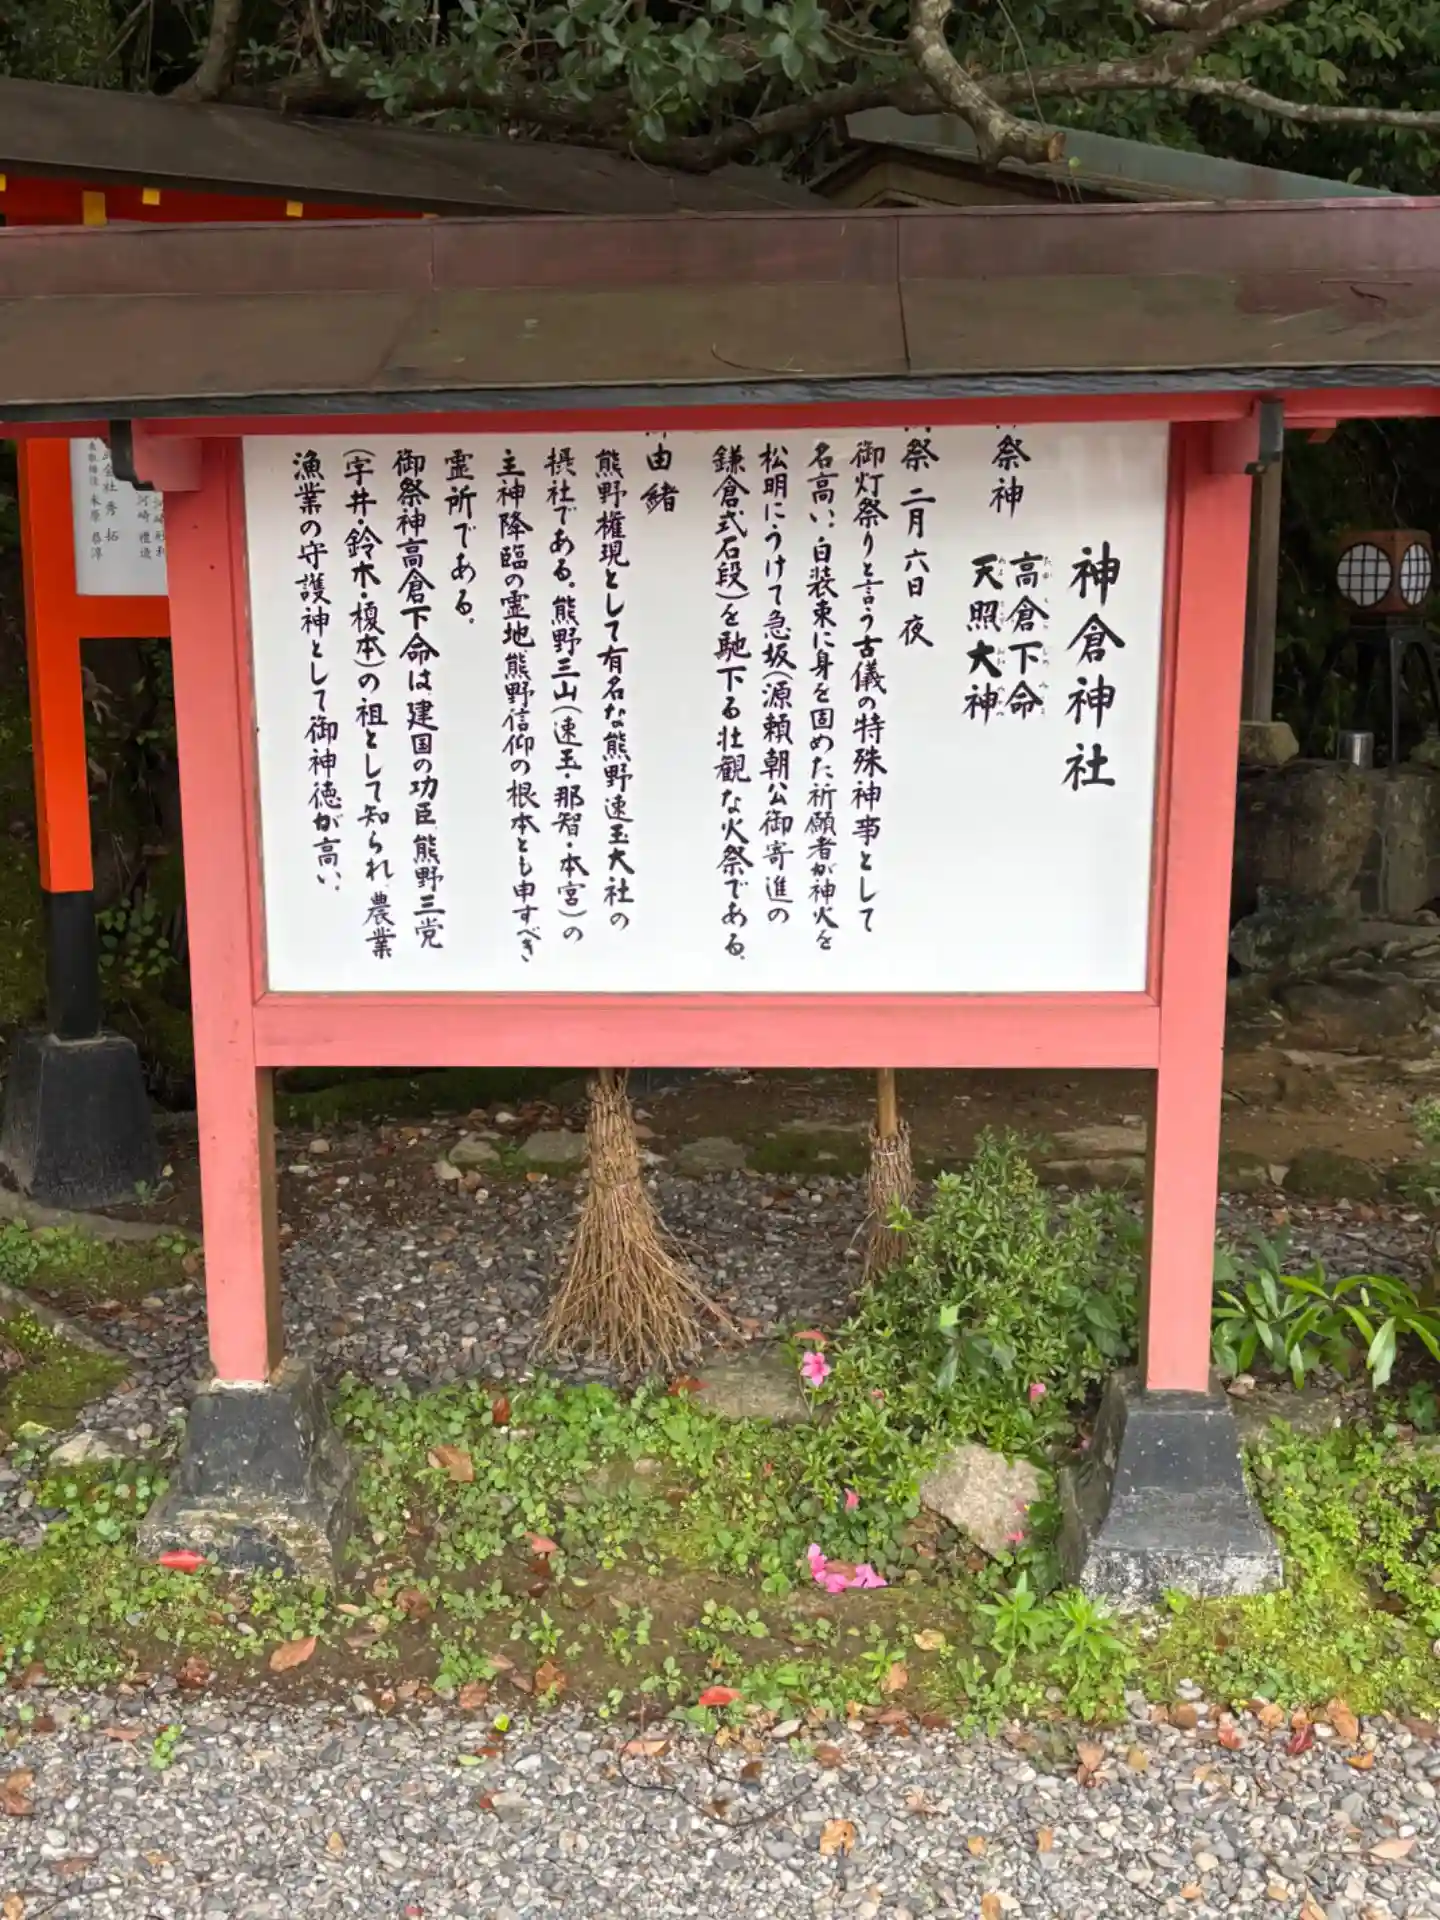 神倉神社
祭神
高倉下命
たかくらじのみこと
天照大神
祭 二月六日 夜
御灯祭りと言う古儀の特殊神事として
名高い。白装束に身を固めた祈願者が神火を
松明にうけて急坂(源頼朝公御寄進の
鎌倉式石段)を馳下る壮観な火祭である。
由緒
熊野権現として有名な熊野速玉大社の
摂社である。熊野三山(速玉・那智・本宮)の
主神降臨の霊地、熊野信仰の根本とも申すべき
霊所である。
御祭神高倉下命は、建国の功臣、熊野三党
(宇井・鈴木・榎本)の祖として知られ、農業
漁業の守護神として御神徳が高い。